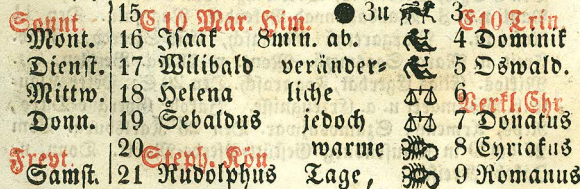 Sonnt. 15 E 10 Mar. Him. 3u 3 E 10 Trin.
Mont. 16 Isaak 8min. ab. 4 Dominik
Dienst. 17 Wilibald veränder⸗ 5 Oswald.
Mittw. 18 Helena liche 6 Verkl. Chr.
Donn. 19 Sebaldus jedoch 7 Donatus
Freyt. 20 Steph. Kön. warme 8 Cyriakus
Samst. 21 Rudolphus Tage, 9 Romanus